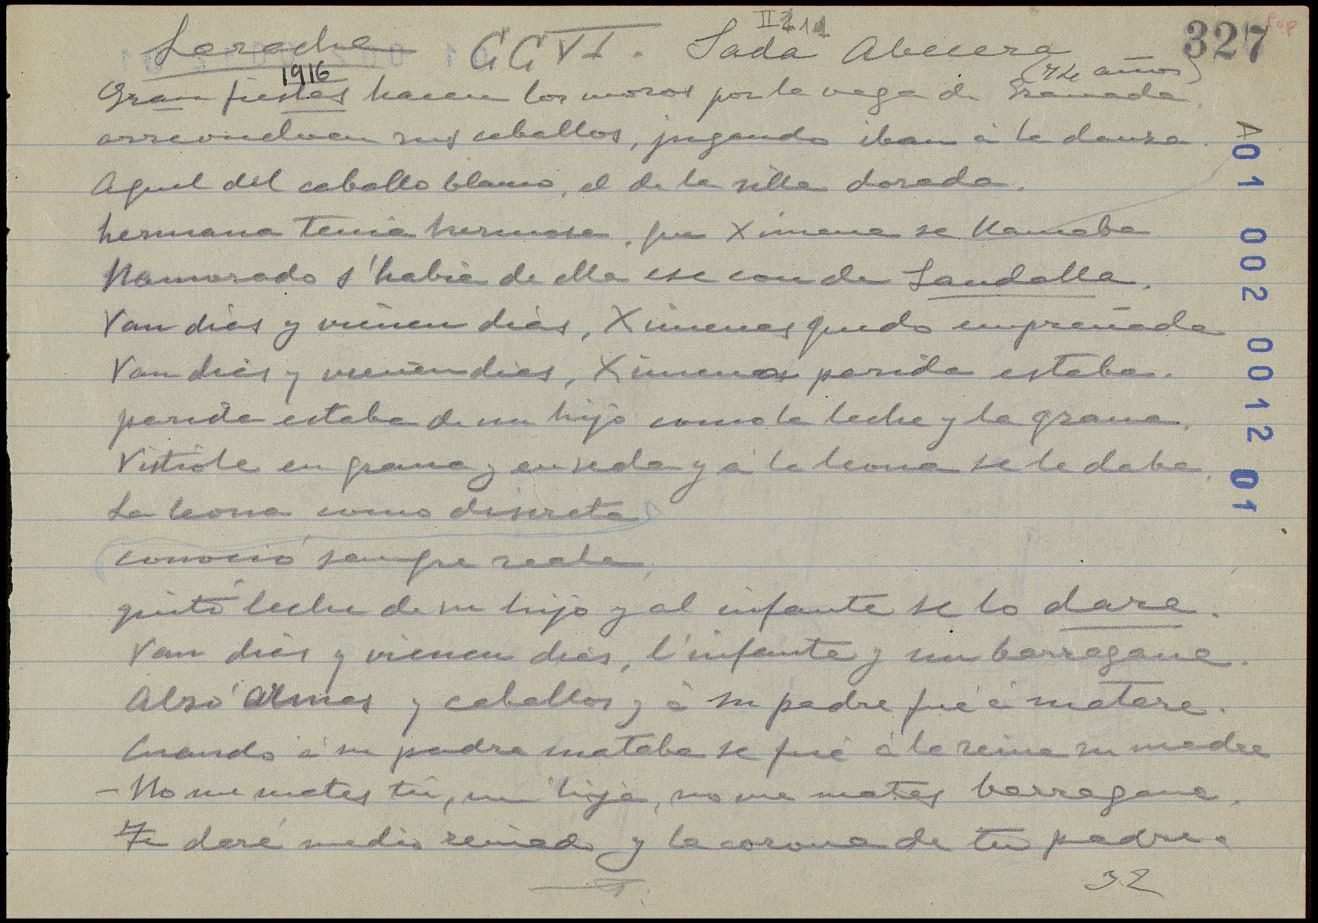 Larache CCVI. Sada Abecera 327
1916 (74 años)
Gran fiestas hacen los moros por la vega de Granada.
arrevuelven sus caballos, jugando iban á la danza.
Aquel del caballo blanco, el de la silla dorada.
hermana tenía hermosa, que Ximena se llamaba
Namorado s'había de ella ese conde Landalla.
Van días y vienen días, Ximenas quedó empreñada
Van días y vienen días, Ximenas parida estaba.
parida estaba de un hijo como la leche y la grana.
Vistiole en grana y en seda y á la leona se le daba.
La leona como discreta
conoció sangre reale,
quitó leche de su hijo y al infante se lo dare.
Van días y vienen días, l'infante y un barragane.
Alzó armas y caballos y á su padre fué á matare.
Cuando á su padre mataba se fué á la reina su madre
– No me mates tú, mi hijo, no me mates barragane.
Te daré medio reinado y la corona de tu padre.
32
A01 002 0012 01